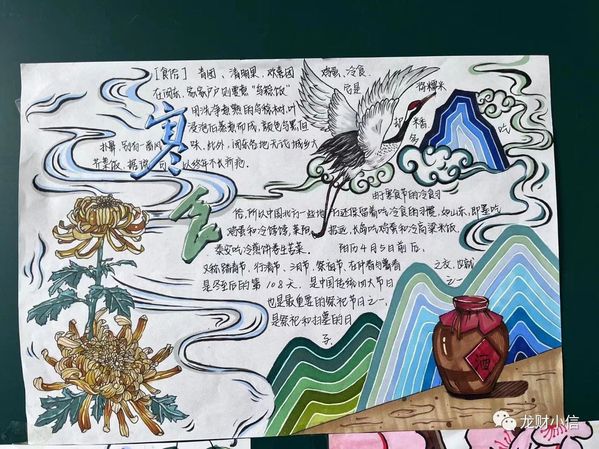 [食俗] 青团、清明果、欢喜团 鸡蛋、冷食.
在闽东，家家户户则要煮“乌稔饭” 它是 将糯米
用洗净煮熟的乌稔树叶
浸泡后蒸煮而成，颜色乌黑但
味。此外，闽东各地无论城乡大
芥菜饭，据说 以终年不长疥疮.
寒
食
由于寒食节的冷食习
俗，所以中国北方一些地方还保留着吃冷食的习惯，如山东，即墨吃
鸡蛋和冷饽饽，莱阳、招远、长岛吃鸡蛋和冷高粱米饭，
泰安吃冷煎饼卷生苦菜. 阳历4月5日前后，
又称踏青节、行清节、三月节、祭祖节，在仲春与暮春 之交，也就
是冬至后的第108天，是中国传统四大节日 之一
也是最重要的祭祀节日之一，
是祭祀和扫墓的日
子.
酒
龙财小信